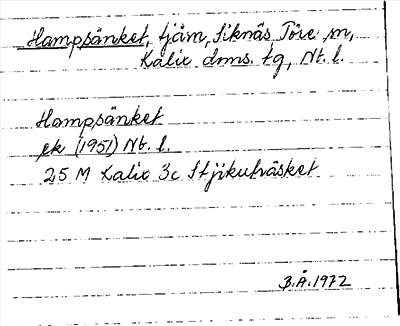 Hampsänket, tjärn, Siknäs Töre sn,
Kalix dms. tg, Nb. l.
Hampsänket
ek (1951) Nb. l.
25 M Kalix 3c Stjikuträsket
B.Å. 1972